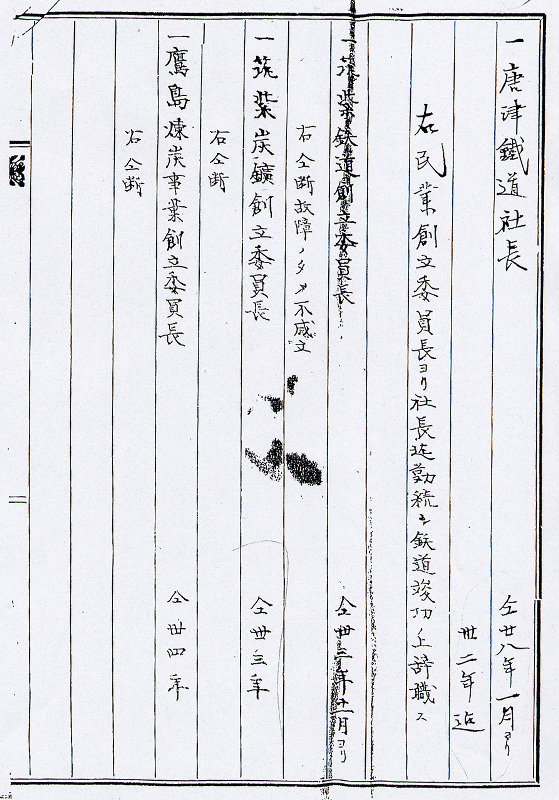 一 唐津鐵道社長 仝廿八年一月ヨリ
卅二年迄
右民業創立委員長ヨリ社長迄勤続シ鉄道竣功上辞職ス
一 筑紫鉄道創立委員長 仝卅三年十二月ヨリ
右仝断故障ノタメ不成立
一 筑紫炭鑛創立委員長 仝卅三年
右仝断
一 鷹島煉炭事業創立委員長 仝卅四年
右仝断